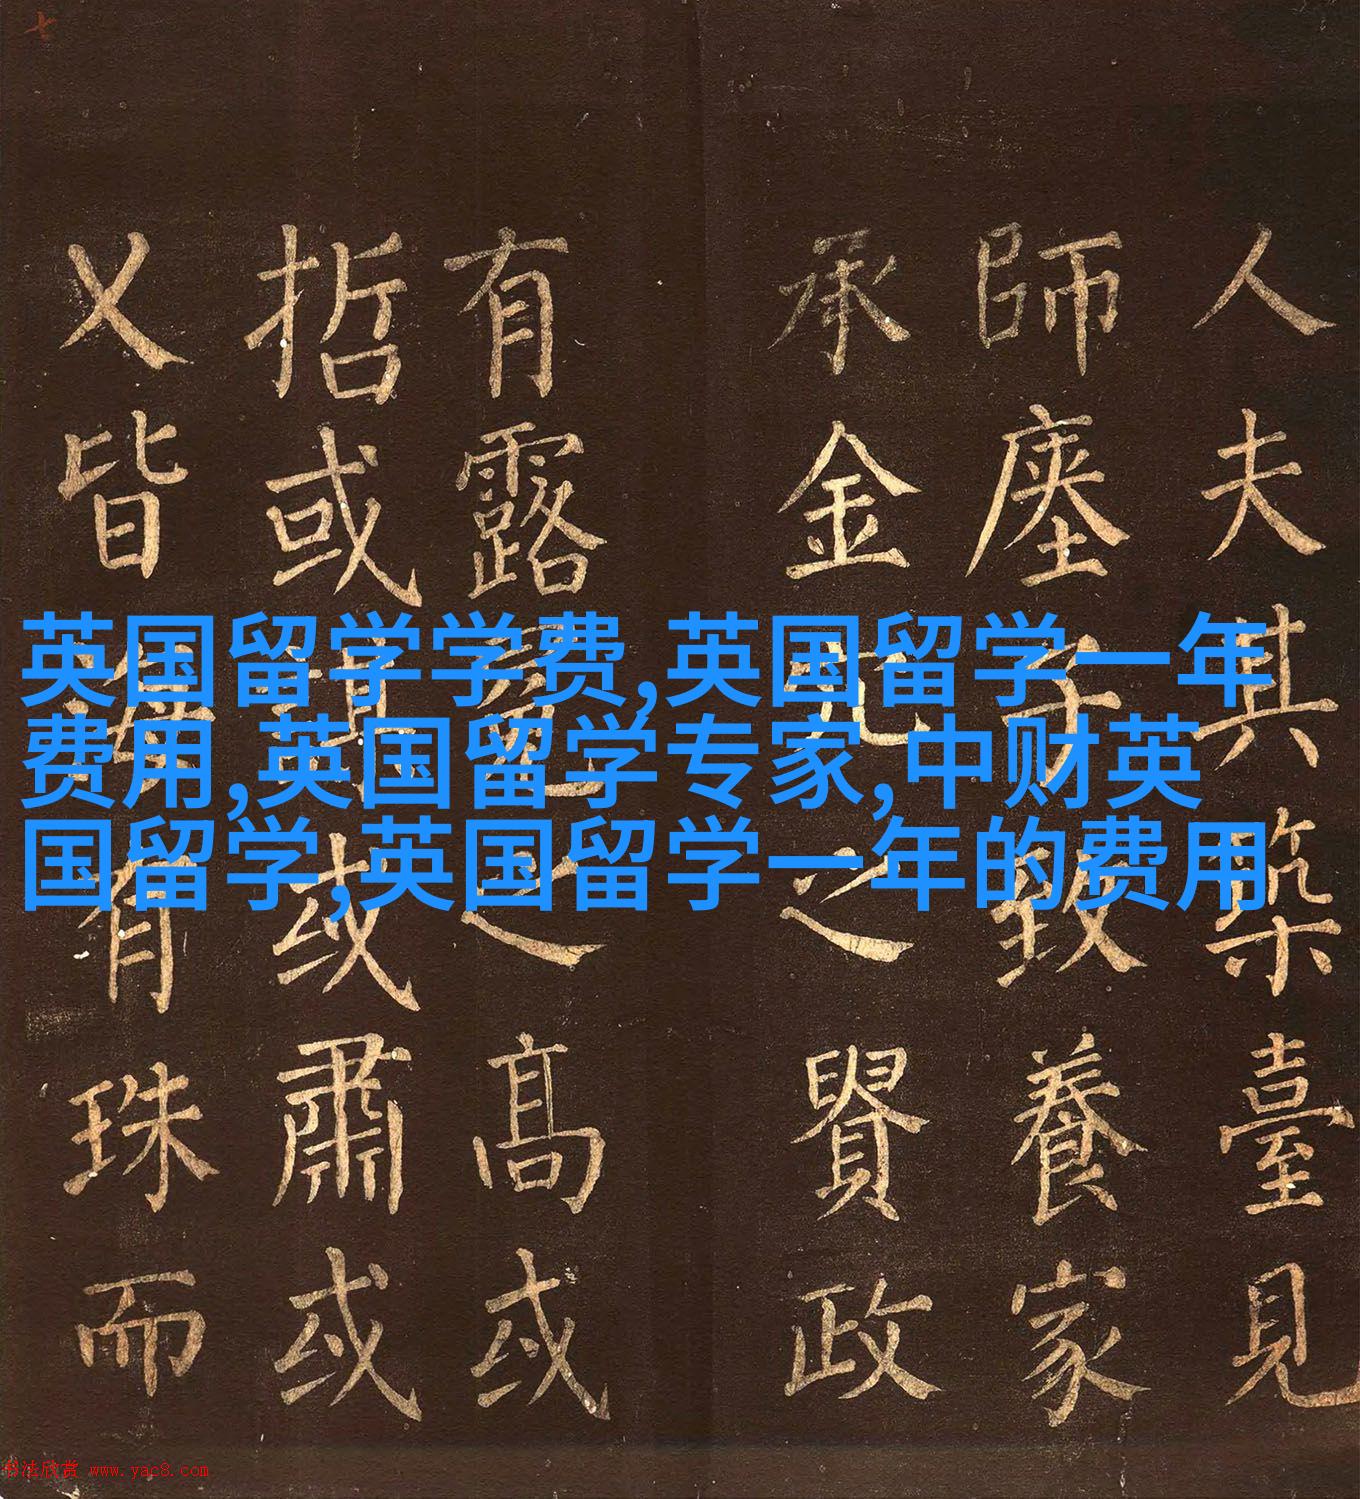 人夫其築臺見
師致養家
承金之賢政
有露冕之高或
哲或或肅或
乂皆有珠而
英国留学学费,英国留学一年
费用,英国留学专家,中财英
国留学,英国留学一年的费用
书法欣赏 www.yac8.com